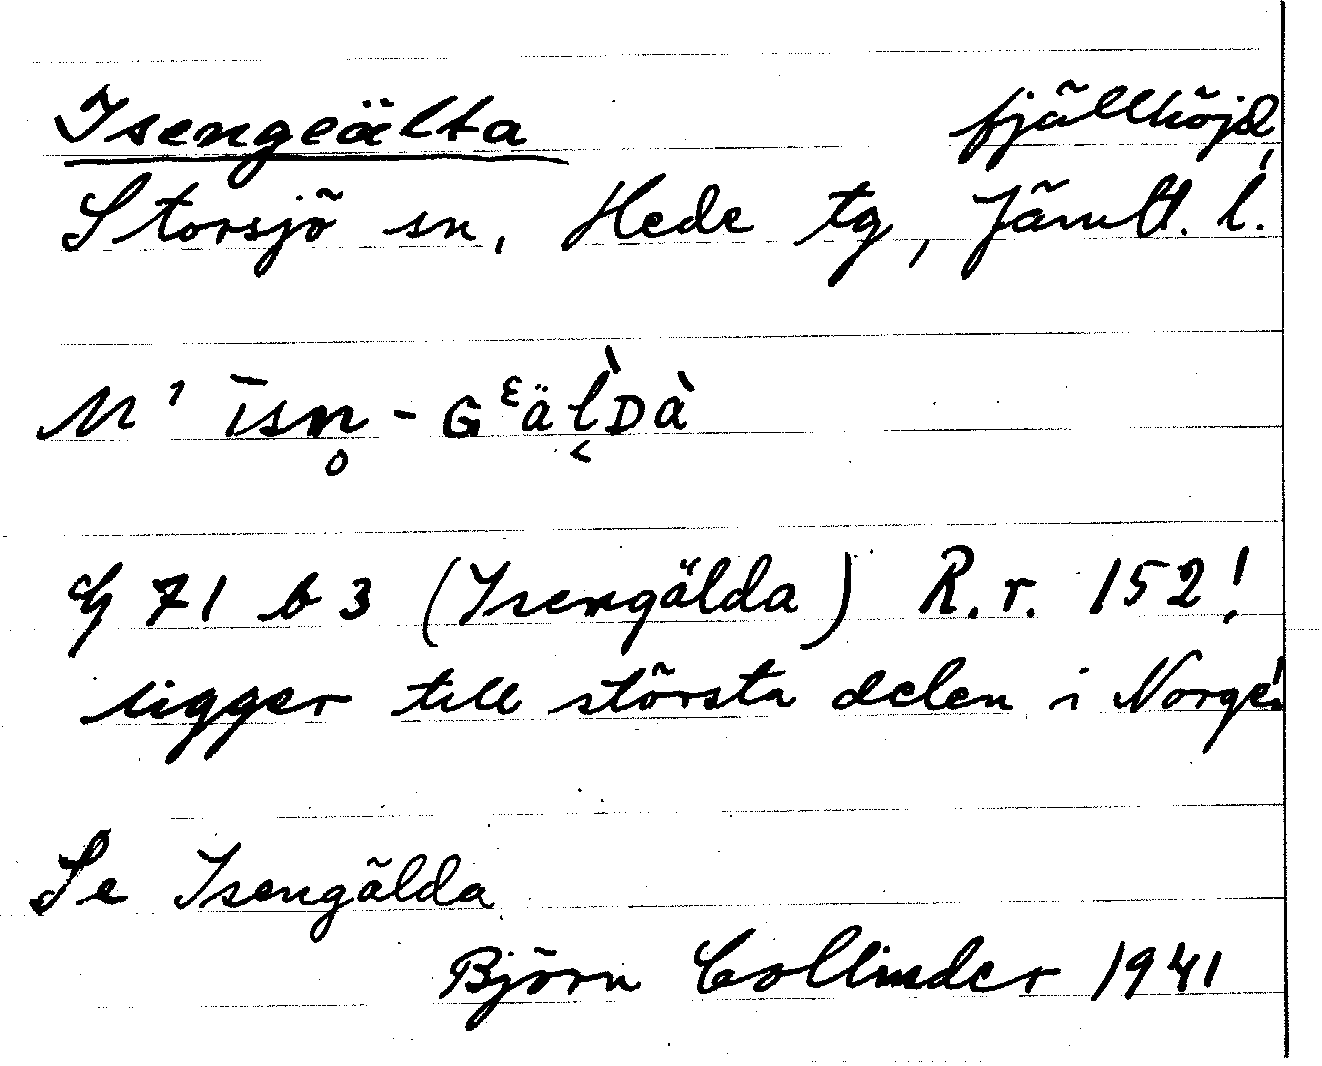 Isengeälta fjällhöjd,
Storsjö sn, Hede tg, Jämtl. l.
M¹ īsn̥ - Gᵋäl̬̀Dà
G 71 b 3 (Isengälda) R.r. 152!
ligger till största delen i Norge!
Se Isengälda
Björn Collinder 1941